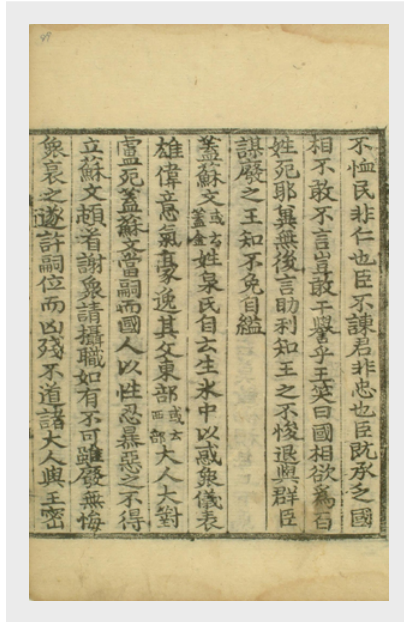 不恤民非仁也臣不諫君非忠也臣旣承乏國
相不敢不言豈敢干譽乎王笑曰國相欲爲百
姓死耶冀無後言助利知王之不悛退與群臣
謀廢之王知不免自縊
蓋蘇文或云蓋金姓泉氏自云生水中以惑衆儀表
雄偉意氣豪逸其父東部或云西部大人大對
盧死蓋蘇文當嗣而國人以性忍暴惡之不得
立蘇文頓首謝衆請攝職如有不可雖廢無悔
衆哀之遂許嗣位而凶殘不道諸大人與王密